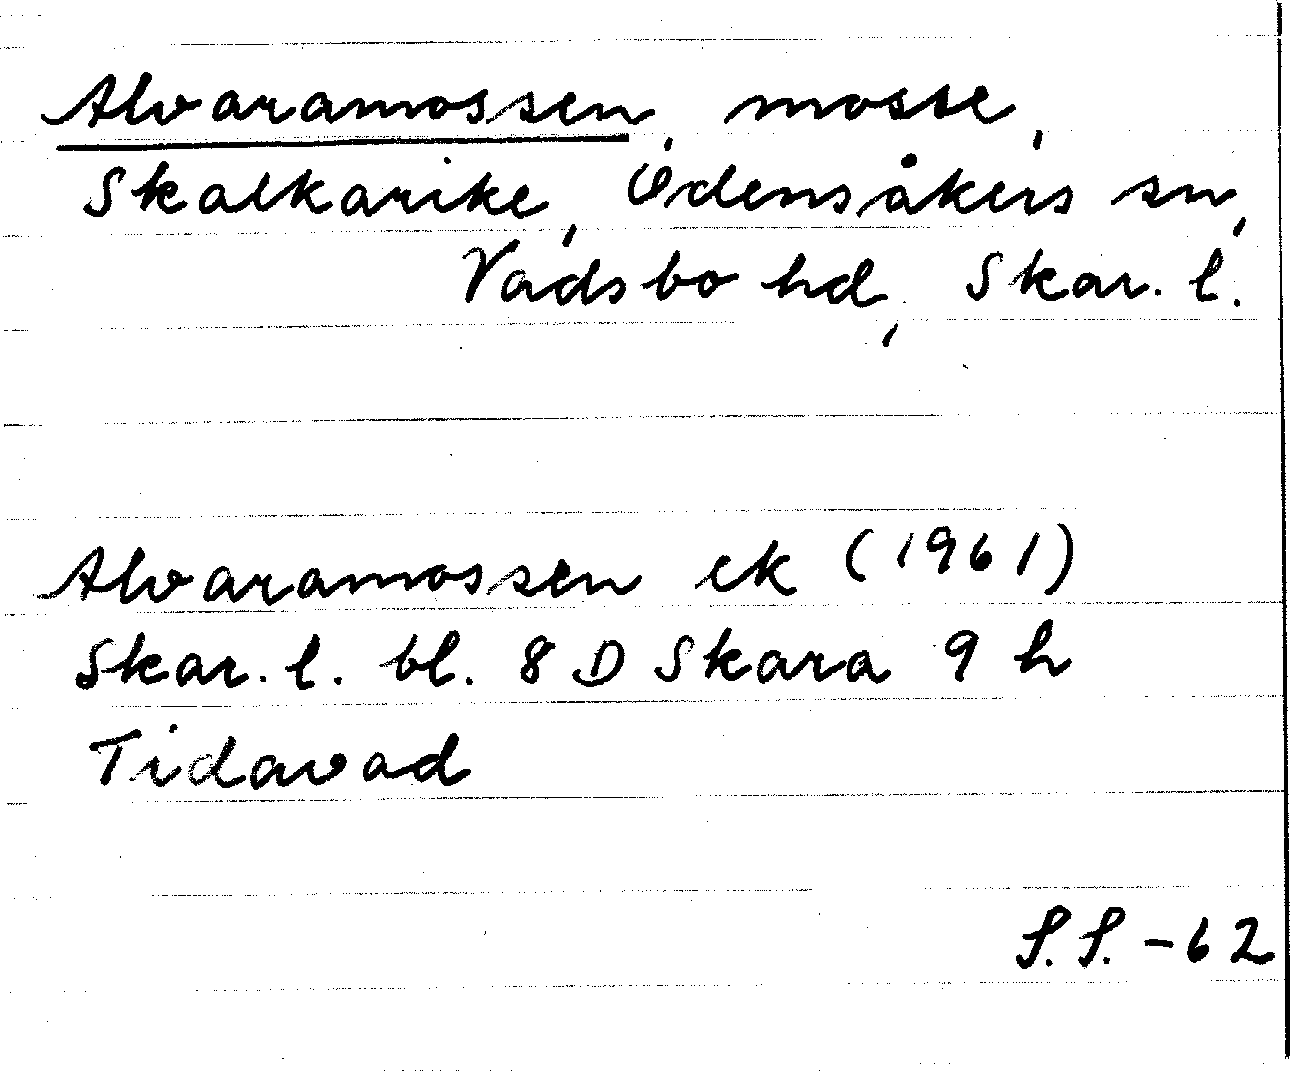 Alvaramossen, mosse,
Skalkarike, Odensåkers sn,
Vadsbo hd, Skar. l.
Alvaramossen ek (1961)
Skar. l. bl. 8 D Skara 9 h
Tidavad
S.S. -62